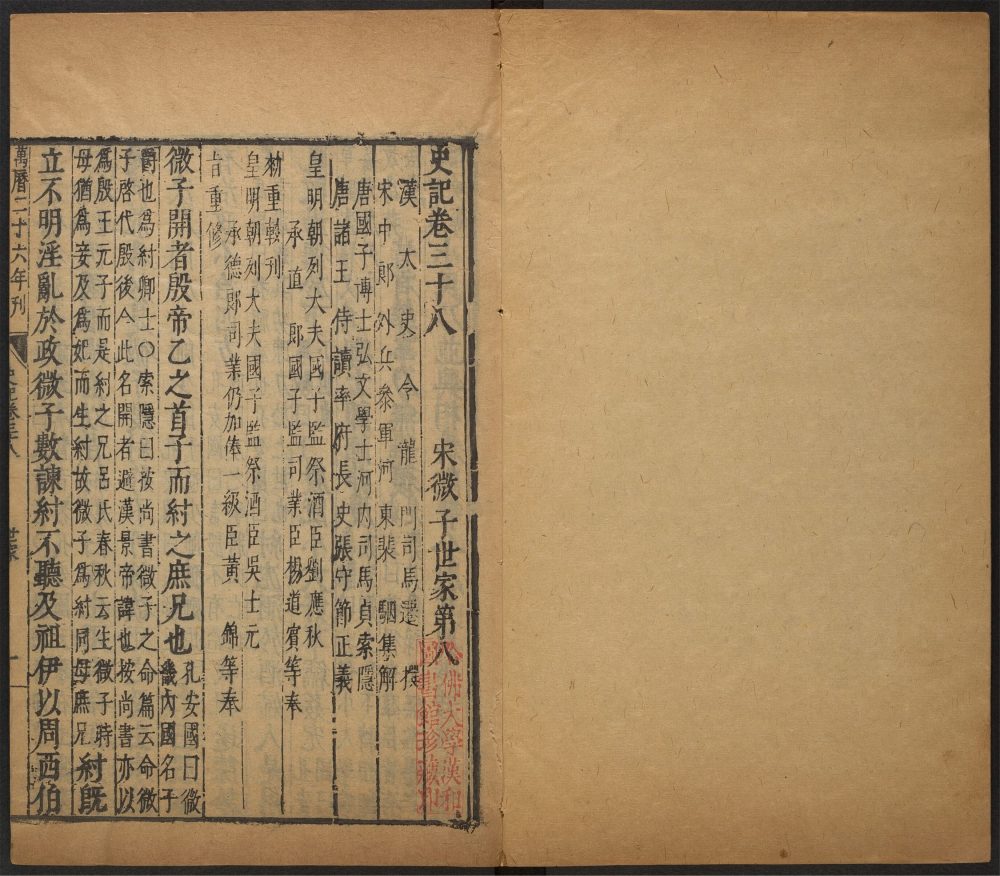 史記卷三十八 宋微子世家第八
漢太史令龍門司馬遷撰
宋中郎外兵參軍河東裴駰集解
唐國子博士弘文學士河內司馬貞索隱
唐諸王侍讀率府長史張守節正義
皇明朝列大夫國子監祭酒臣劉應秋
承直郎國子監司業臣楊道賓等奉
勑重較刊
皇明朝列大夫國子監祭酒臣吳士元
承德郎司業仍加俸一級臣黃錦等奉
旨重修
微子開者殷帝乙之首子而紂之庶兄也
孔安國曰微
畿內國名子
爵也為紂卿士○索隱曰按尚書微子之命篇云命微
子啓代殷後今此名開者避漢景帝諱也按尚書亦以
為殷王元子而是紂之兄呂氏春秋云生微子時
母猶為妾及為妃而生紂故微子為紂同母庶兄
紂既
立不明淫亂於政微子數諫紂不聽及祖伊以周西伯
萬曆二十六年刊
史記卷三十八 世家 一
哈佛大學漢和
圖書館珍藏印